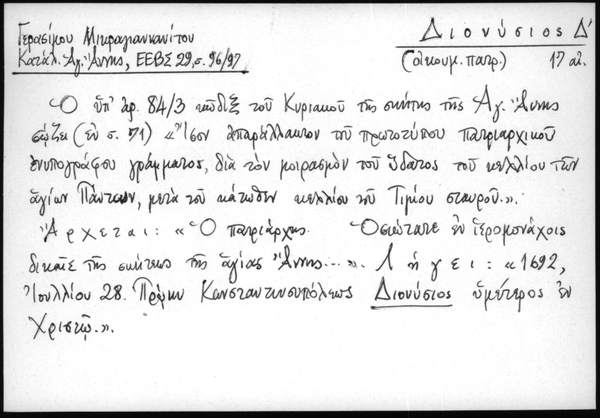 Γερασίμου Μικραγιαννανίτου
Διονύσιος Δ'
Κατάλ. Ἁγ. Ἄννης, ΕΕΒΣ 29, σ. 96/97
(οἰκουμ. πατρ.) 17 αἰ.
Ὁ ὑπ' ἀρ. 84/3 κῶδιξ τοῦ Κυριακοῦ τῆς σκήτης τῆς Ἁγ. Ἄννης
σῴζει (ἐν σ. 71) «Ἴσον ἀπαράλλακτον τοῦ πρωτοτύπου πατριαρχικοῦ
ἐνυπογράφου γράμματος, διὰ τὸν μοιρασμὸν τοῦ ὕδατος τοῦ κελλίου τῶν
ἁγίων Πάντων, μετὰ τοῦ κάτωθεν κελλίου τοῦ Τιμίου σταυροῦ.».
Ἄρχεται: «Ὁ πατριάρχης. Ὁσιώτατε ἐν ἱερομονάχοις
δικαῖε τῆς σκήτεως τῆς ἁγίας Ἄννης...». Λήγει: «1692,
Ἰουλλίου 28. Πρῴην Κωνσταντινουπόλεως Διονύσιος ὑμέτερος ἐν
Χριστῷ.».